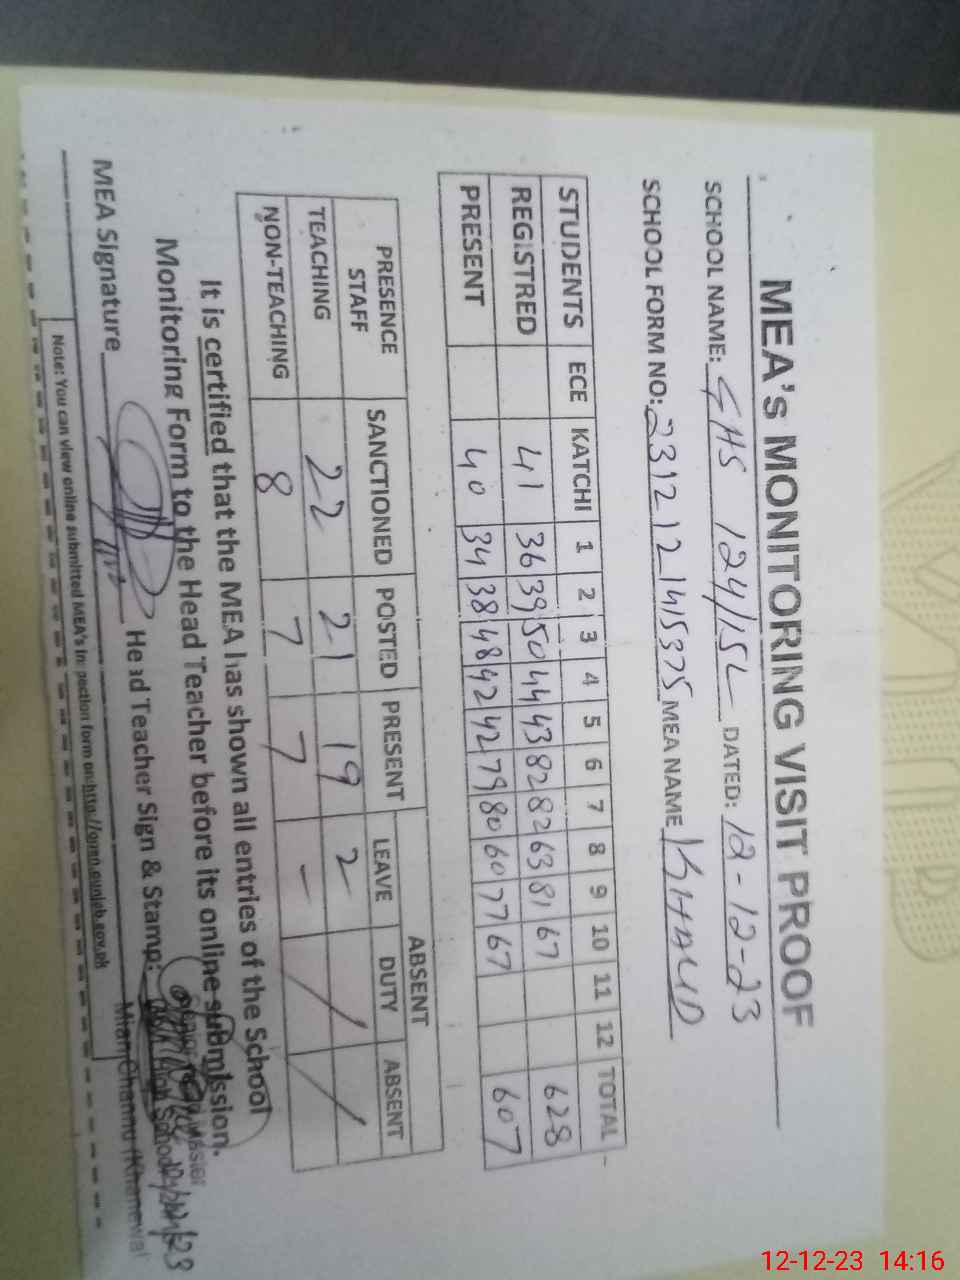 MEA's MONITORING VISIT PROOF
SCHOOL NAME: GHS 124/15L DATED: 12-12-23
SCHOOL FORM NO: 2312121415375 MEA NAME KHALID
STUDENTS ECE KATCHI 1 2 3 4 5 6 7 8 9 10 11 12 TOTAL
REGISTRED 41 36 39 50 44 43 82 82 63 81 67 628
PRESENT 40 34 38 48 42 42 79 80 60 77 67 607
PRESENCE STAFF SANCTIONED POSTED PRESENT ABSENT
LEAVE DUTY ABSENT
TEACHING 22 21 19 2 / /
NON-TEACHING 8 7 7 -
It is certified that the MEA has shown all entries of the School
Monitoring Form to the Head Teacher before its online submission.
MEA Signature Head Teacher Sign & Stamp:
High School
Mian Channu (Khanewal
Note: You can view online submitted MEA's Inspection form on:http://open.punjab.gov.pk
12-12-23 14:16